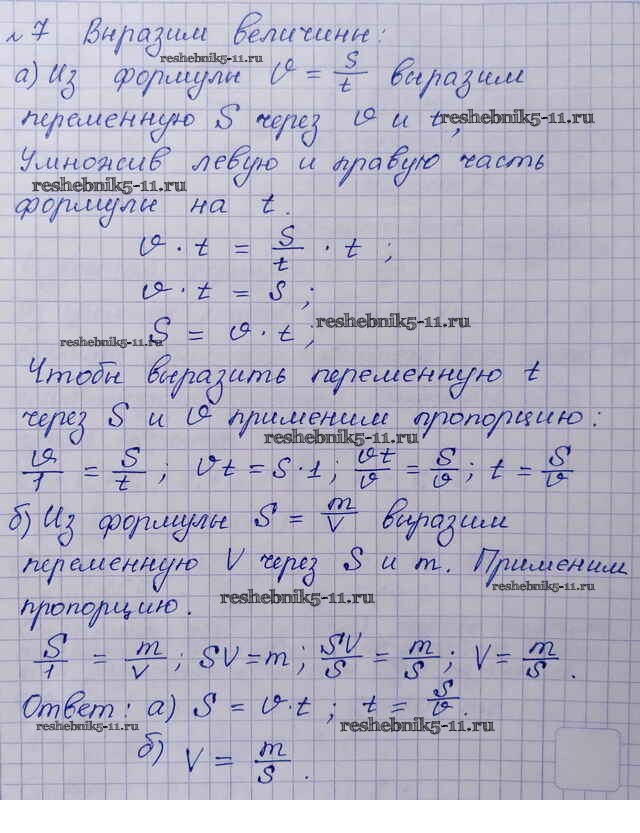 №7 Выразим величины:
reshebnik5-11.ru
а) Из формулы v = S/t выразим
переменную S через v и t,
reshebnik5-11.ru
Умножив левую и правую часть
reshebnik5-11.ru
формулы на t.
v · t = S/t · t ;
v · t = S ;
S = v · t ;
reshebnik5-11.ru
reshebnik5-11.ru
Чтобы выразить переменную t
через S и v применим пропорцию:
reshebnik5-11.ru
v/1 = S/t ; vt = S·1 ; vt/v = S/v ; t = S/v
б) Из формулы S = m/V выразим
переменную V через S и m. Применим
reshebnik5-11.ru
пропорцию.
reshebnik5-11.ru
S/1 = m/V ; SV = m ; SV/S = m/S ; V = m/S .
Ответ: а) S = v·t ; t = S/v .
reshebnik5-11.ru
reshebnik5-11.ru
б) V = m/S .